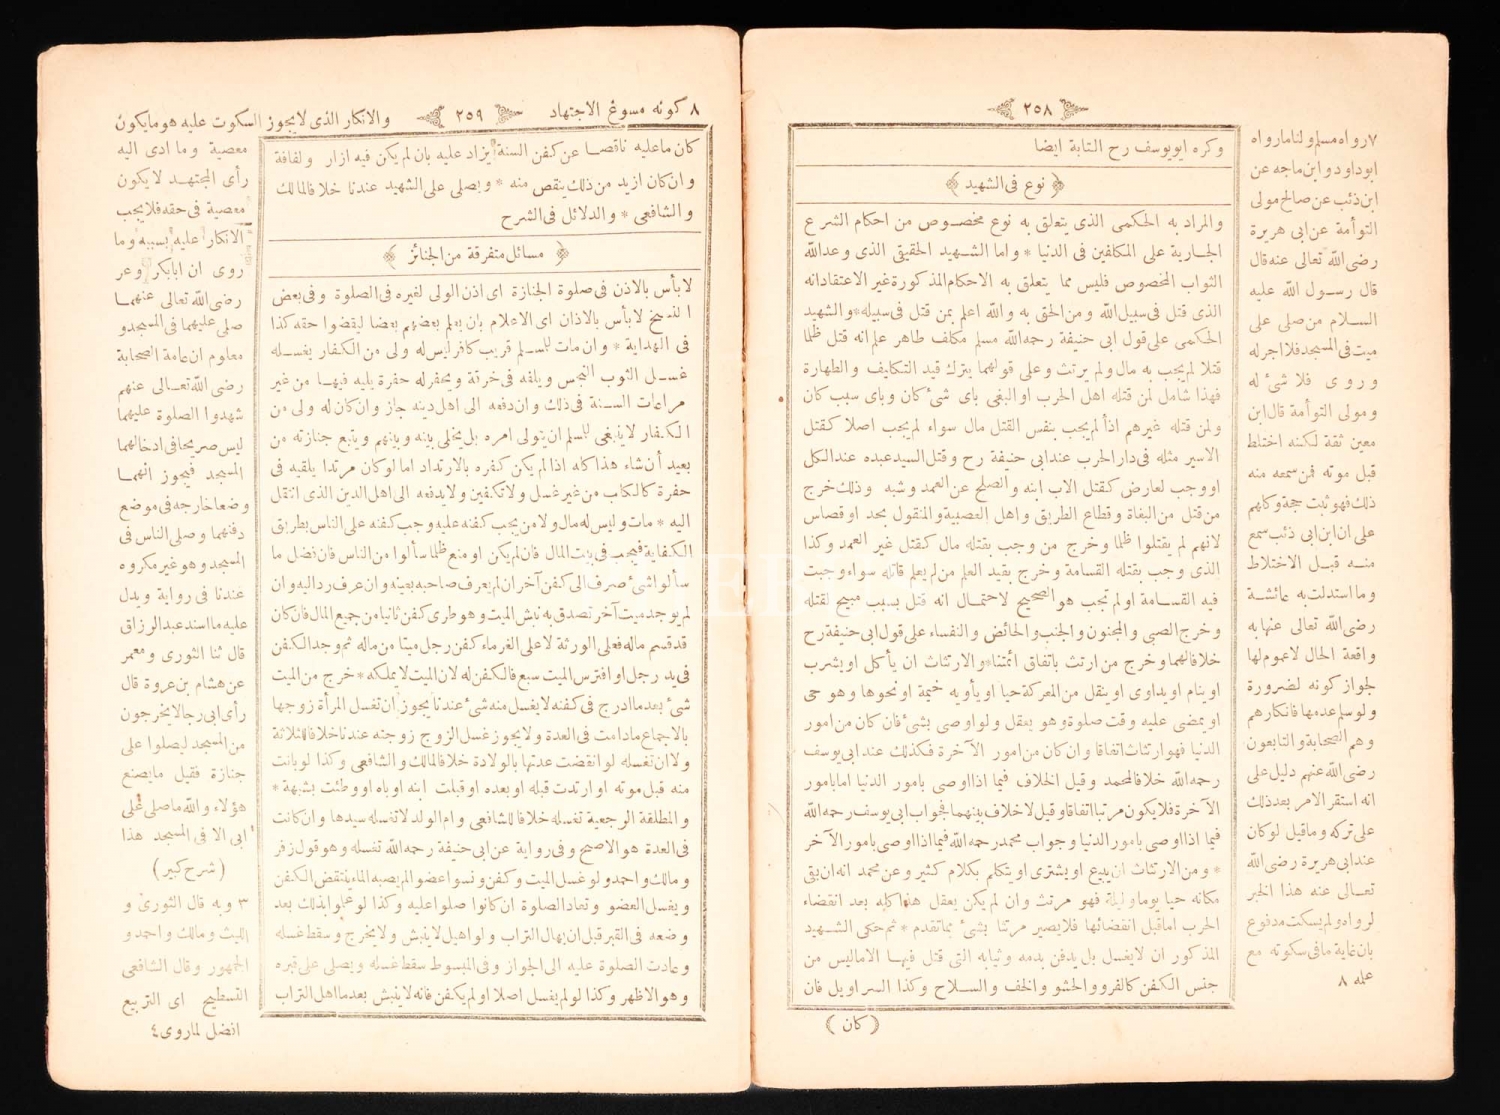 ٢٥٨
وكره ابويوسف رح التابة ايضا
﴿ نوع فى الشهيد ﴾
والمراد به الحكمى الذى يتعلق به نوع مخصوص من احكام الشرع
الجارية على المكلفين فى الدنيا * واما الشهيد الحقيقى الذى وعدالله
الثواب المخصوص فليس مما يتعلق به الاحكام المذكورة غير الاعتقادانه
الذى قتل فى سبيل الله ومن الحق به والله اعلم بمن قتل فى سبيله * والشهيد
الحكمى على قول ابى حنيفة رحمه الله مسلم مكلف طاهر علم انه قتل ظلما
قتلا لم يجب به مال ولم يرتث وعلى قولهما يترك قيد التكليف والطهارة
فهذا شامل لمن قتله اهل الحرب او البغى باى شئ كان وباى سبب كان
ولمن قتله غيرهم اذا لم يجب بنفس القتل مال سواء لم يجب اصلا كقتل
الاسير مثله فى دار الحرب عند ابى حنيفة رح وقتل السيد عبده عند الكل
او وجب لعارض كقتل الاب ابنه والصلح عن العمد وشبه وذلك خرج
من قتل من البغاة وقطاع الطريق واهل العصبية والمنقول بحد او قصاص
لانهم لم يقتلوا ظلما وخرج من وجب بقتله مال كقتل غير العمد وكذا
الذى وجب بقتله القسامة وخرج بقيد العلم من لم يعلم قاتله سواء وجبت
فيه القسامة او لم تجب هو الصحيح لاحتمال انه قتل بسبب مبيح لقتله
وخرج الصبى والمجنون والجنب والحائض والنفساء على قول ابى حنيفة رح
خلافا لهما وخرج من ارتث باتفاق ائمتنا * والارتثاث ان يأكل او يشرب
او ينام او يداوى او ينقل من المعركة حيا او يأويه خيمة او نحوها وهو حى
او يمضى عليه وقت صلوة وهو يعقل ولو اوصى بشئ فان كان من امور
الدنيا فهو ارتثاث اتفاقا وان كان من امور الآخرة فكذلك عند ابى يوسف
رحمه الله خلافا لمحمد وقيل الخلاف فيما اذا اوصى بامور الدنيا اما بامور
الآخرة فلا يكون مرتثا اتفاقا وقيل لا خلاف بينهما فجواب ابى يوسف رحمه الله
فيما اذا اوصى بامور الدنيا وجواب محمد رحمه الله فيما اذا اوصى بامور الآخر
* ومن الارتثاث ان يبيع او يشترى او يتكلم بكلام كثير وعن محمد انه ان بقى
مكانه حيا يوما وليلة فهو مرتث وان لم يكن يعقل هذا كله بعد انقضاء
الحرب اما قبل انقضائها فلا يصير مرتثا بشئ بما تقدم * ثم حكى الشهيد
المذكور ان لا يغسل بل يدفن بدمه وثيابه التى قتل فيها الا ماليس من
جنس الكفن كالفرو والحشو والخف والسلاح وكذا السراويل فان
﴿ كان ﴾
٧ رواه مسلم ولنا مارواه
ابوداود وابن ماجه عن
ابن ذئب عن صالح مولى
التوأمة عن ابى هريرة
رضى الله تعالى عنه قال
قال رسول الله عليه
السلام من صلى على
ميت فى المسجد فلا اجر له
وروى فلا شئ له
ومولى التوأمة قال ابن
معين ثقة لكنه اختلط
قبل موته فمن سمعه منه
ذلك فهو ثبت حجة وكلهم
على ان ابن ابى ذئب سمع
منه قبل الاختلاط
وما استدلت به عائشة
رضى الله تعالى عنها به
واقعة الحال لا عموم لها
لجواز كونه لضرورة
ولو سلم عدمها فانكارهم
وهم الصحابة والتابعون
رضى الله عنهم دليل على
انه استقر الامر بعد ذلك
على تركه وما قيل لو كان
عند ابى هريرة رضى الله
تعالى عنه هذا الخبر
لرواه ولم يسكت مدفوع
بان غاية ما فى سكوته مع
علمه ٨
٨ كونه مسوغ الاجتهاد
٢٥٩
والانكار الذى لا يجوز السكوت عليه هو ما يكون
كان ما عليه ناقصا عن كفن السنة يزاد عليه بان لم يكن فيه ازار ولفافة
وان كان ازيد من ذلك ينقص منه * ويصلى على الشهيد عندنا خلافا لمالك
والشافعى * والدلائل فى الشرح
﴿ مسائل متفرقة من الجنائز ﴾
لا بأس بالاذن فى صلوة الجنازة اى اذن الولى لغيره فى الصلوة وفى بعض
النسخ لا بأس بالاذان اى الاعلام بان يعلم بعضهم بعضا ليقضوا حقه كذا
فى الهداية * وان مات للمسلم قريب كافر ليس له ولى من الكفار يغسله
غسل الثوب النجس ويلفه فى خرقة ويحفر له حفرة يلقيه فيها من غير
مراعات السنة فى ذلك وان دفعه الى اهل دينه جاز وان كان له ولى من
الكفار لا ينبغى للمسلم ان يتولى امره بل يخلى بينه وبينهم ويتبع جنازته من
بعيد أن شاء هذا كله اذا لم يكن كفره بالارتداد اما لو كان مرتدا يلقيه فى
حفرة كالكلب من غير غسل ولا تكفين ولا يدفعه الى اهل الدين الذى انتقل
اليه * مات وليس له مال ولا من يجب كفنه عليه وجب كفنه على الناس بطريق
الكفاية فيجب فى بيت المال فان لم يكن او منع ظلما سألوا من الناس فان فضل ما
سألوا شئ صرف الى كفن آخر ان لم يعرف صاحبه بعينه وان عرف رد اليه وان
لم يوجد ميت آخر تصدق به نبش الميت وهو طرى كفن ثانيا من جميع المال فان كان
قد قسم ماله فعلى الورثة لا على الغرماء كفن رجل ميتا من ماله ثم وجد الكفن
فى يد رجل او افترس الميت سبع فالكفن له لان الميت لا يملكه * خرج من الميت
شئ بعد ما ادرج فى كفنه لا يغسل منه شئ عندنا يجوز ان تغسل المرأة زوجها
بالاجماع ما دامت فى العدة ولا يجوز غسل الزوج زوجته عندنا خلافا للثلاثة
ولا ان تغسله لو انقضت عدتها بالولادة خلافا لمالك والشافعى وكذا لو بانت
منه قبل موته او ارتدت قبله او بعده او قبلت ابنه او اباه او وطئت بشبهة *
والمطلقة الرجعية تغسله خلافا للشافعى وام الولد لا تغسله سيدها وان كانت
فى العدة هو الاصح وفى رواية عن ابى حنيفة رحمه الله تغسله وهو قول زفر
ومالك واحمد ولو غسل الميت وكفن ونسوا عضوا لم يصبه الماء ينتقض الكفن
ويغسل العضو وتعاد الصلوة ان كانوا صلوا عليه وكذا لو علموا بذلك بعد
وضعه فى القبر قبل ان يهال التراب ولو اهيل لا ينبش ولا يخرج وسقط غسله
وعادت الصلوة عليه الى الجواز وفى المبسوط سقط غسله ويصلى على قبره
وهو الاظهر وكذا لو لم يغسل اصلا او لم يكفن فانه لا ينبش بعد ما اهل التراب
معصية وما ادى اليه
رأى المجتهد لا يكون
معصية فى حقه فلا يجب
الانكار عليه بسببه وما
روى ان ابابكر وعر
رضى الله تعالى عنهما
صلى عليهما فى المسجد و
معلوم ان عامة الصحابة
رضى الله تعالى عنهم
شهدوا الصلوة عليهما
ليس صريحا فى ادخالهما
المسجد فيجوز انهما
وضعا خارجه فى موضع
دفنهما وصلى الناس فى
المسجد وهو غير مكروه
عندنا فى رواية ويدل
عليه ما اسند عبد الرزاق
قال ثنا الثورى ومعمر
عن هشام بن عروة قال
رأى ابى رجالا يخرجون
من المسجد ليصلوا على
جنازة فقيل ما يصنع
هؤلاء والله ما صلى على
ابى الا فى المسجد هذا
( شرح كبير )
٣ وبه قال الثورى و
الليث ومالك واحمد و
الجمهور وقال الشافعى
التسطيح اى التربيع
افضل لما روى ٤